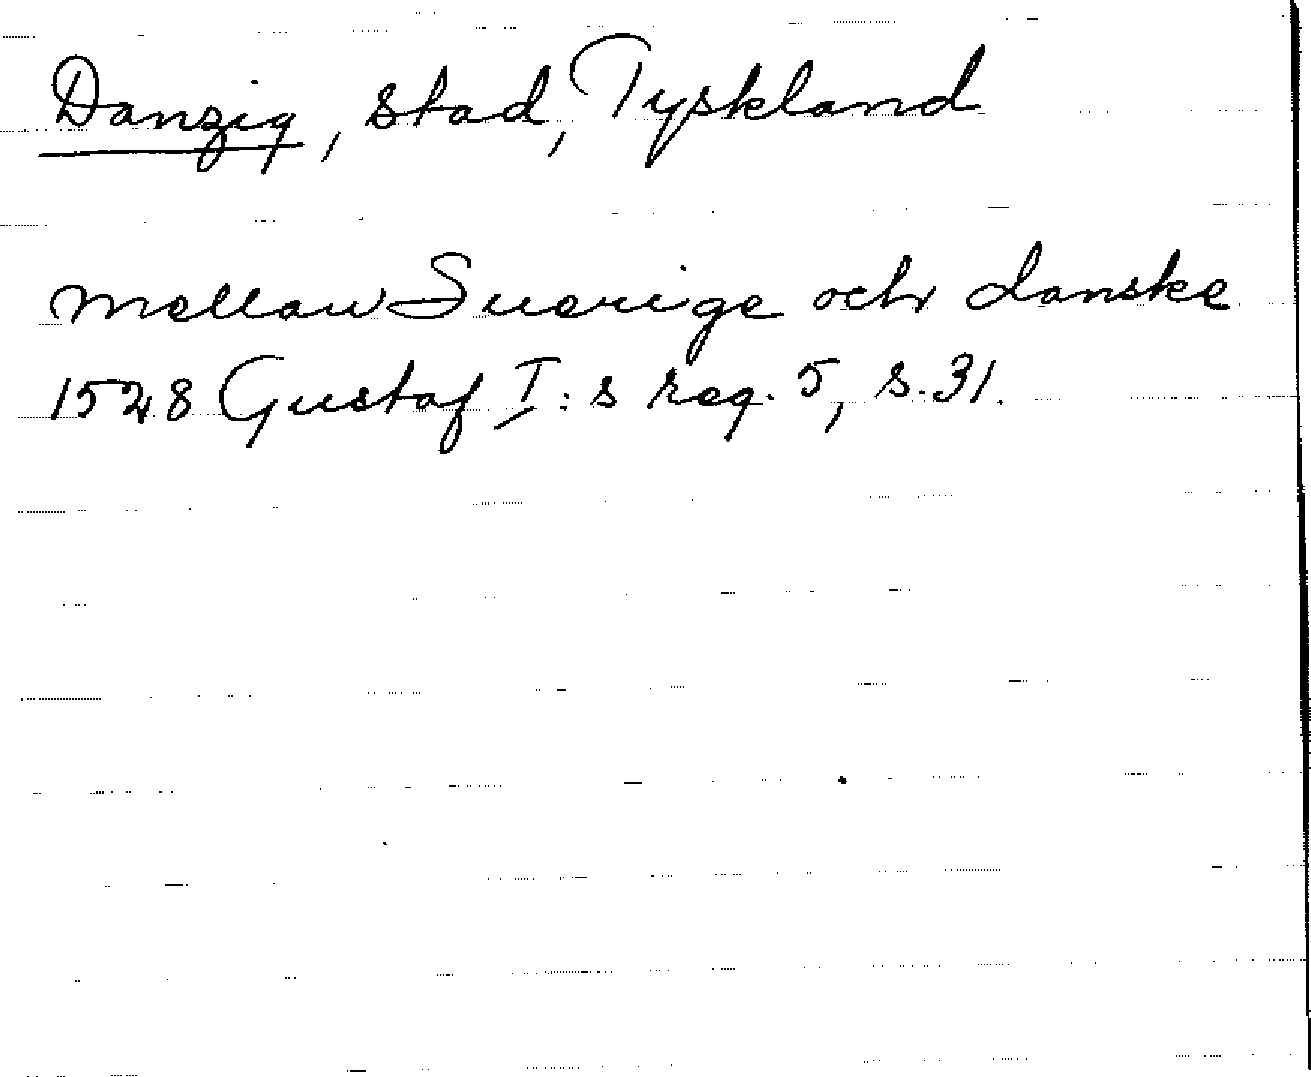 Danzig, stad, Tyskland
mellan Suerige och danske
1528 Gustaf I:s reg. 5, s. 31.